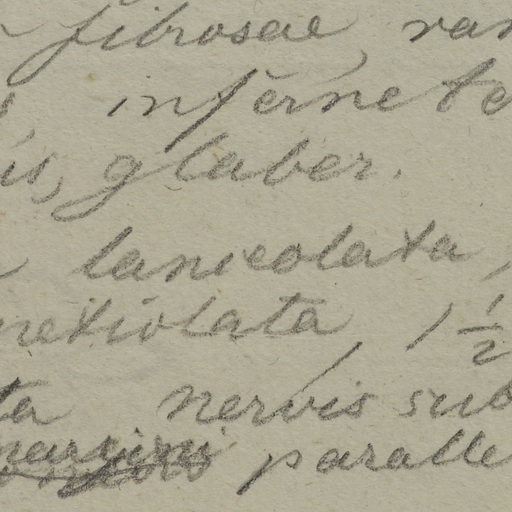 fibrosae, ran
inferne te
is, glaber.
lanceolata,
petiolata, 1 1/2
ta nervis sub
margini paralle